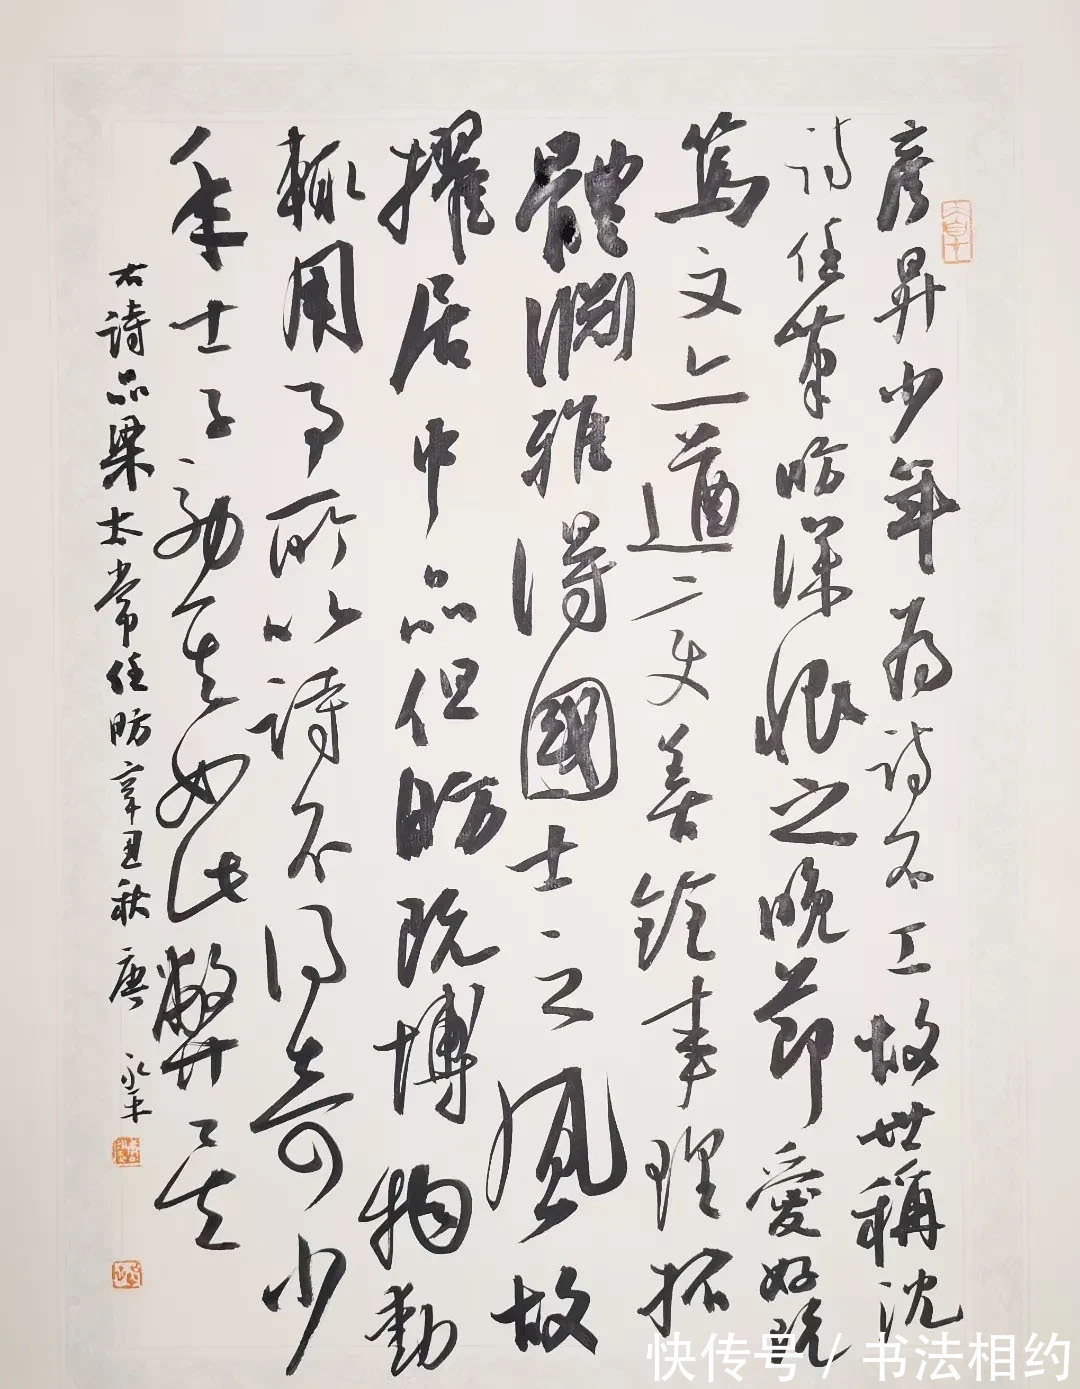 彥昇少年為詩不工故世稱沈
詩任筆昉深恨之晚節愛好既
篤文亦遒變善銓事理拓
體淵雅得國士之風故
擢居中品但昉既博物動
輒用事所以詩不得奇少
年士子効其如此弊矣
右詩品梁太常任昉辛丑秋唐永平
快传号 / 书法相约